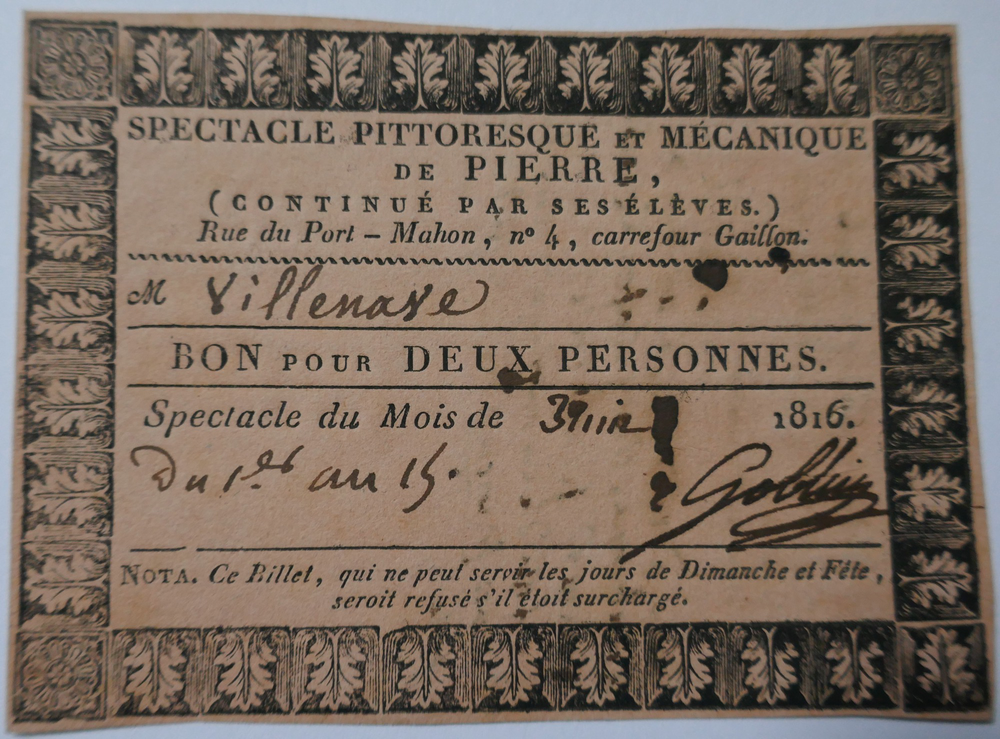 SPECTACLE PITTORESQUE ET MÉCANIQUE
DE PIERRE,
(CONTINUÉ PAR SES ÉLÈVES.)
Rue du Port – Mahon, nº 4, carrefour Gaillon.
M Villenave
BON POUR DEUX PERSONNES.
Spectacle du Mois de Juin 1816.
Du 1er au 15.
NOTA. Ce Billet, qui ne peut servir les jours de Dimanche et Fête,
seroit refusé s'il étoit surchargé.